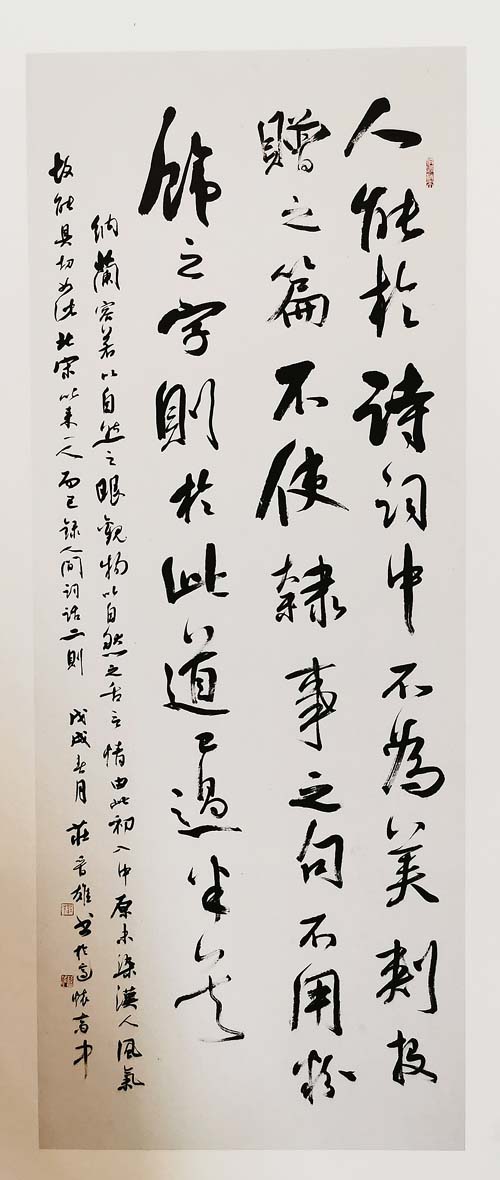 人能於詩詞中不為美刺投
贈之篇不使隸事之句不用粉
飾之字則於此道已過半矣
納蘭容若以自然之眼觀物以自然之舌言情由此初入中原未染漢人風氣
故能真切如此北宋以來一人而已錄人間詞話二則 戊戌春月 莊晉雄書於懷齋中